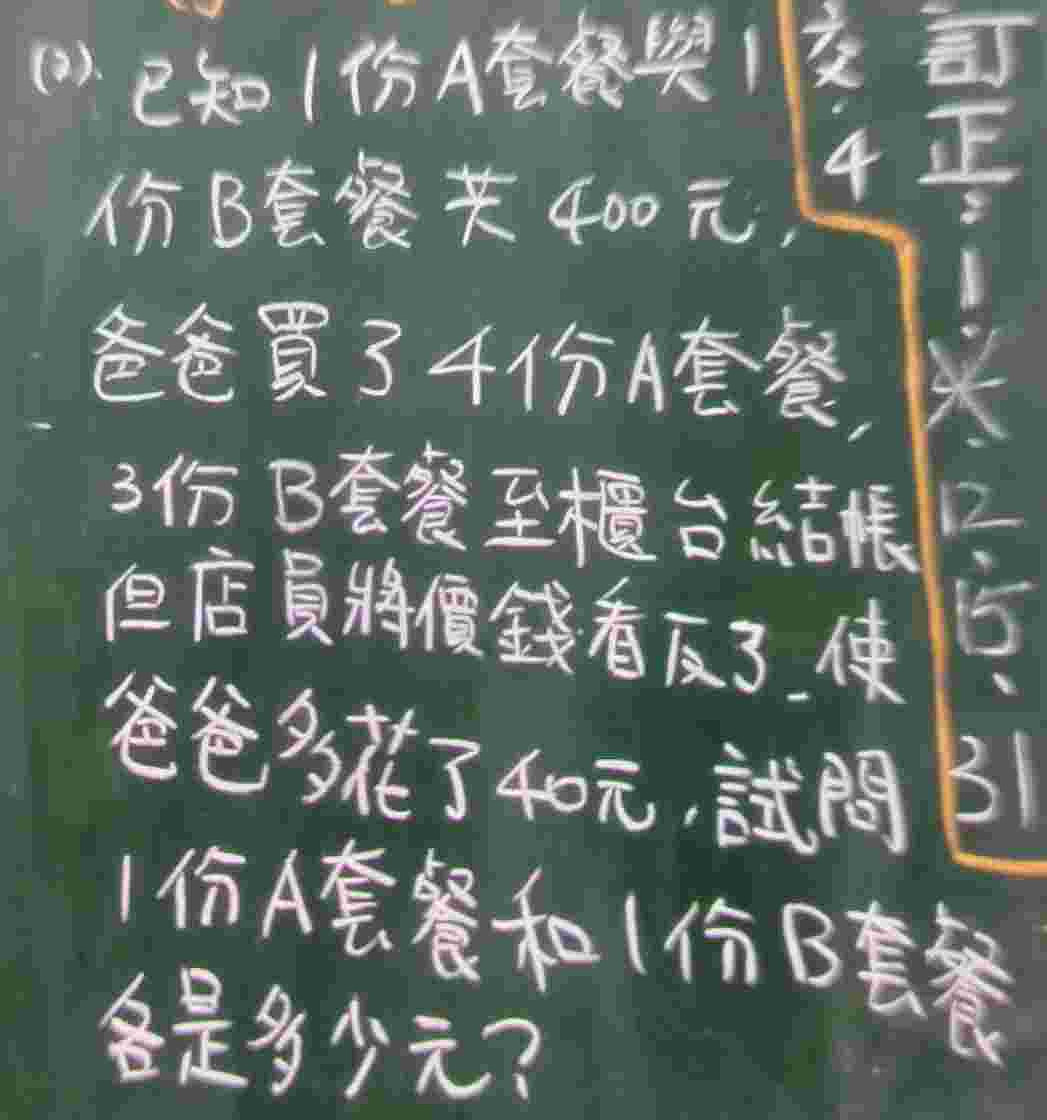 (2). 已知1份A套餐與1
份B套餐共400元,
爸爸買了4份A套餐,
3份B套餐至櫃台結帳
但店員將價錢看反了,使
爸爸多花了40元,試問
1份A套餐和1份B套餐
各是多少元?
交.4
訂正:1.
31